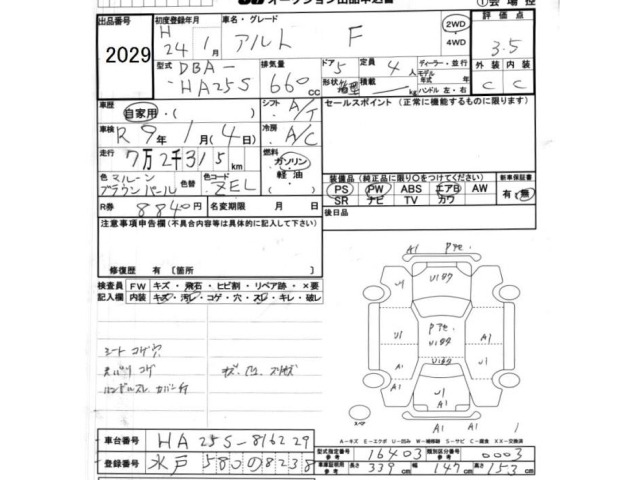 オークション出品申込書
①会場控
出品番号
2029
初度登録年月
H 24年1月
車名・グレード
アルト F
2WD
・
4WD
評価点
3.5
型式
DBA-
HA25S
排気量
660 cc
ドア
5
定員
4人
形状
積載
kg
ディーラー・並行
モデル
年式 年
ハンドル 左・右
外装 内装
C C
車歴
自家用・( )
シフト
A/T
セールスポイント (正常に機能するものに限ります)
車検
R 9年 1月(4日)
冷房
A/C
走行
7万2千315km
燃料
ガソリン・
軽油・
色
マルーン
ブラウンパール
色替
色コード
ZEL
装備品(純正品に限り○をつけてください)
PS PW ABS エアB AW
SR ナビ TV カワ
新車保証書
有・無
R券
8840円
名変期限 月 日
後日品
注意事項申告欄(不具合内容等は具体的に記入して下さい)
修復歴 有 [箇所 ]
検査員
記入欄
FW キズ・飛石・ヒビ割・リペア跡・×要
内装 キズ・汚レ・コゲ・穴・スレ・キレ・破レ
シートコゲ穴
A1
U1
U1
P7
A1
U1
A1
A1
A1
A1
A1
スペア
A-キズ E-エクボ U-凹み W-補修跡 S-サビ C-腐食 XX-交換済
車台番号
HA25S-816229
登録番号
水戸 580 の 8238
型式指定番号
参考
16403
類別区分番号
参考
0003
車庫証明用
参考
長さ 339cm
幅 147cm
高さ 153cm